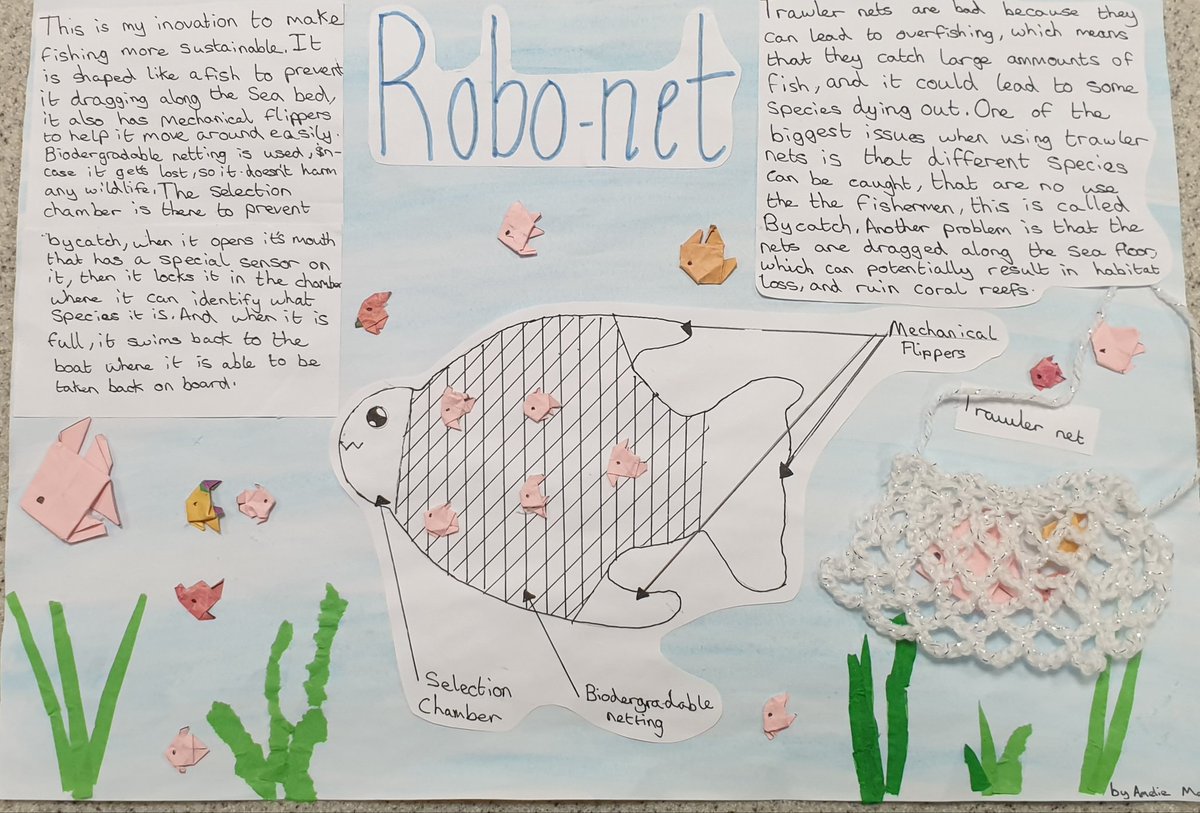 This is my inovation to make
fishing more sustainable. It
is shaped like a fish to prevent
it dragging along the Sea bed,
it also has Mechanical flippers
to help it move around easily.
Biodergradable netting is used, in-
case it gets lost, so it doesn't harm
any wildlife. The selection
chamber is there to prevent
bycatch, when it opens it's mouth
that has a special sensor on
it, then it locks it in the chamber
where it can identify what
species it is. And when it is
full, it swims back to the
boat where it is able to be
taken back on board.
Robo-net
Trawler nets are bad because they
can lead to overfishing, which means
that they catch large ammounts of
fish, and it could lead to some
species dying out. One of the
biggest issues when using trawler
nets is that different species
can be caught, that are no use
the the fishermen, this is called
Bycatch. Another problem is that the
nets are dragged along the sea floor,
which can potentially result in habitat
loss, and ruin coral reefs.
Mechanical
Flippers
Trawler net
Selection
Chamber
Biodergradable
netting
by Amelie